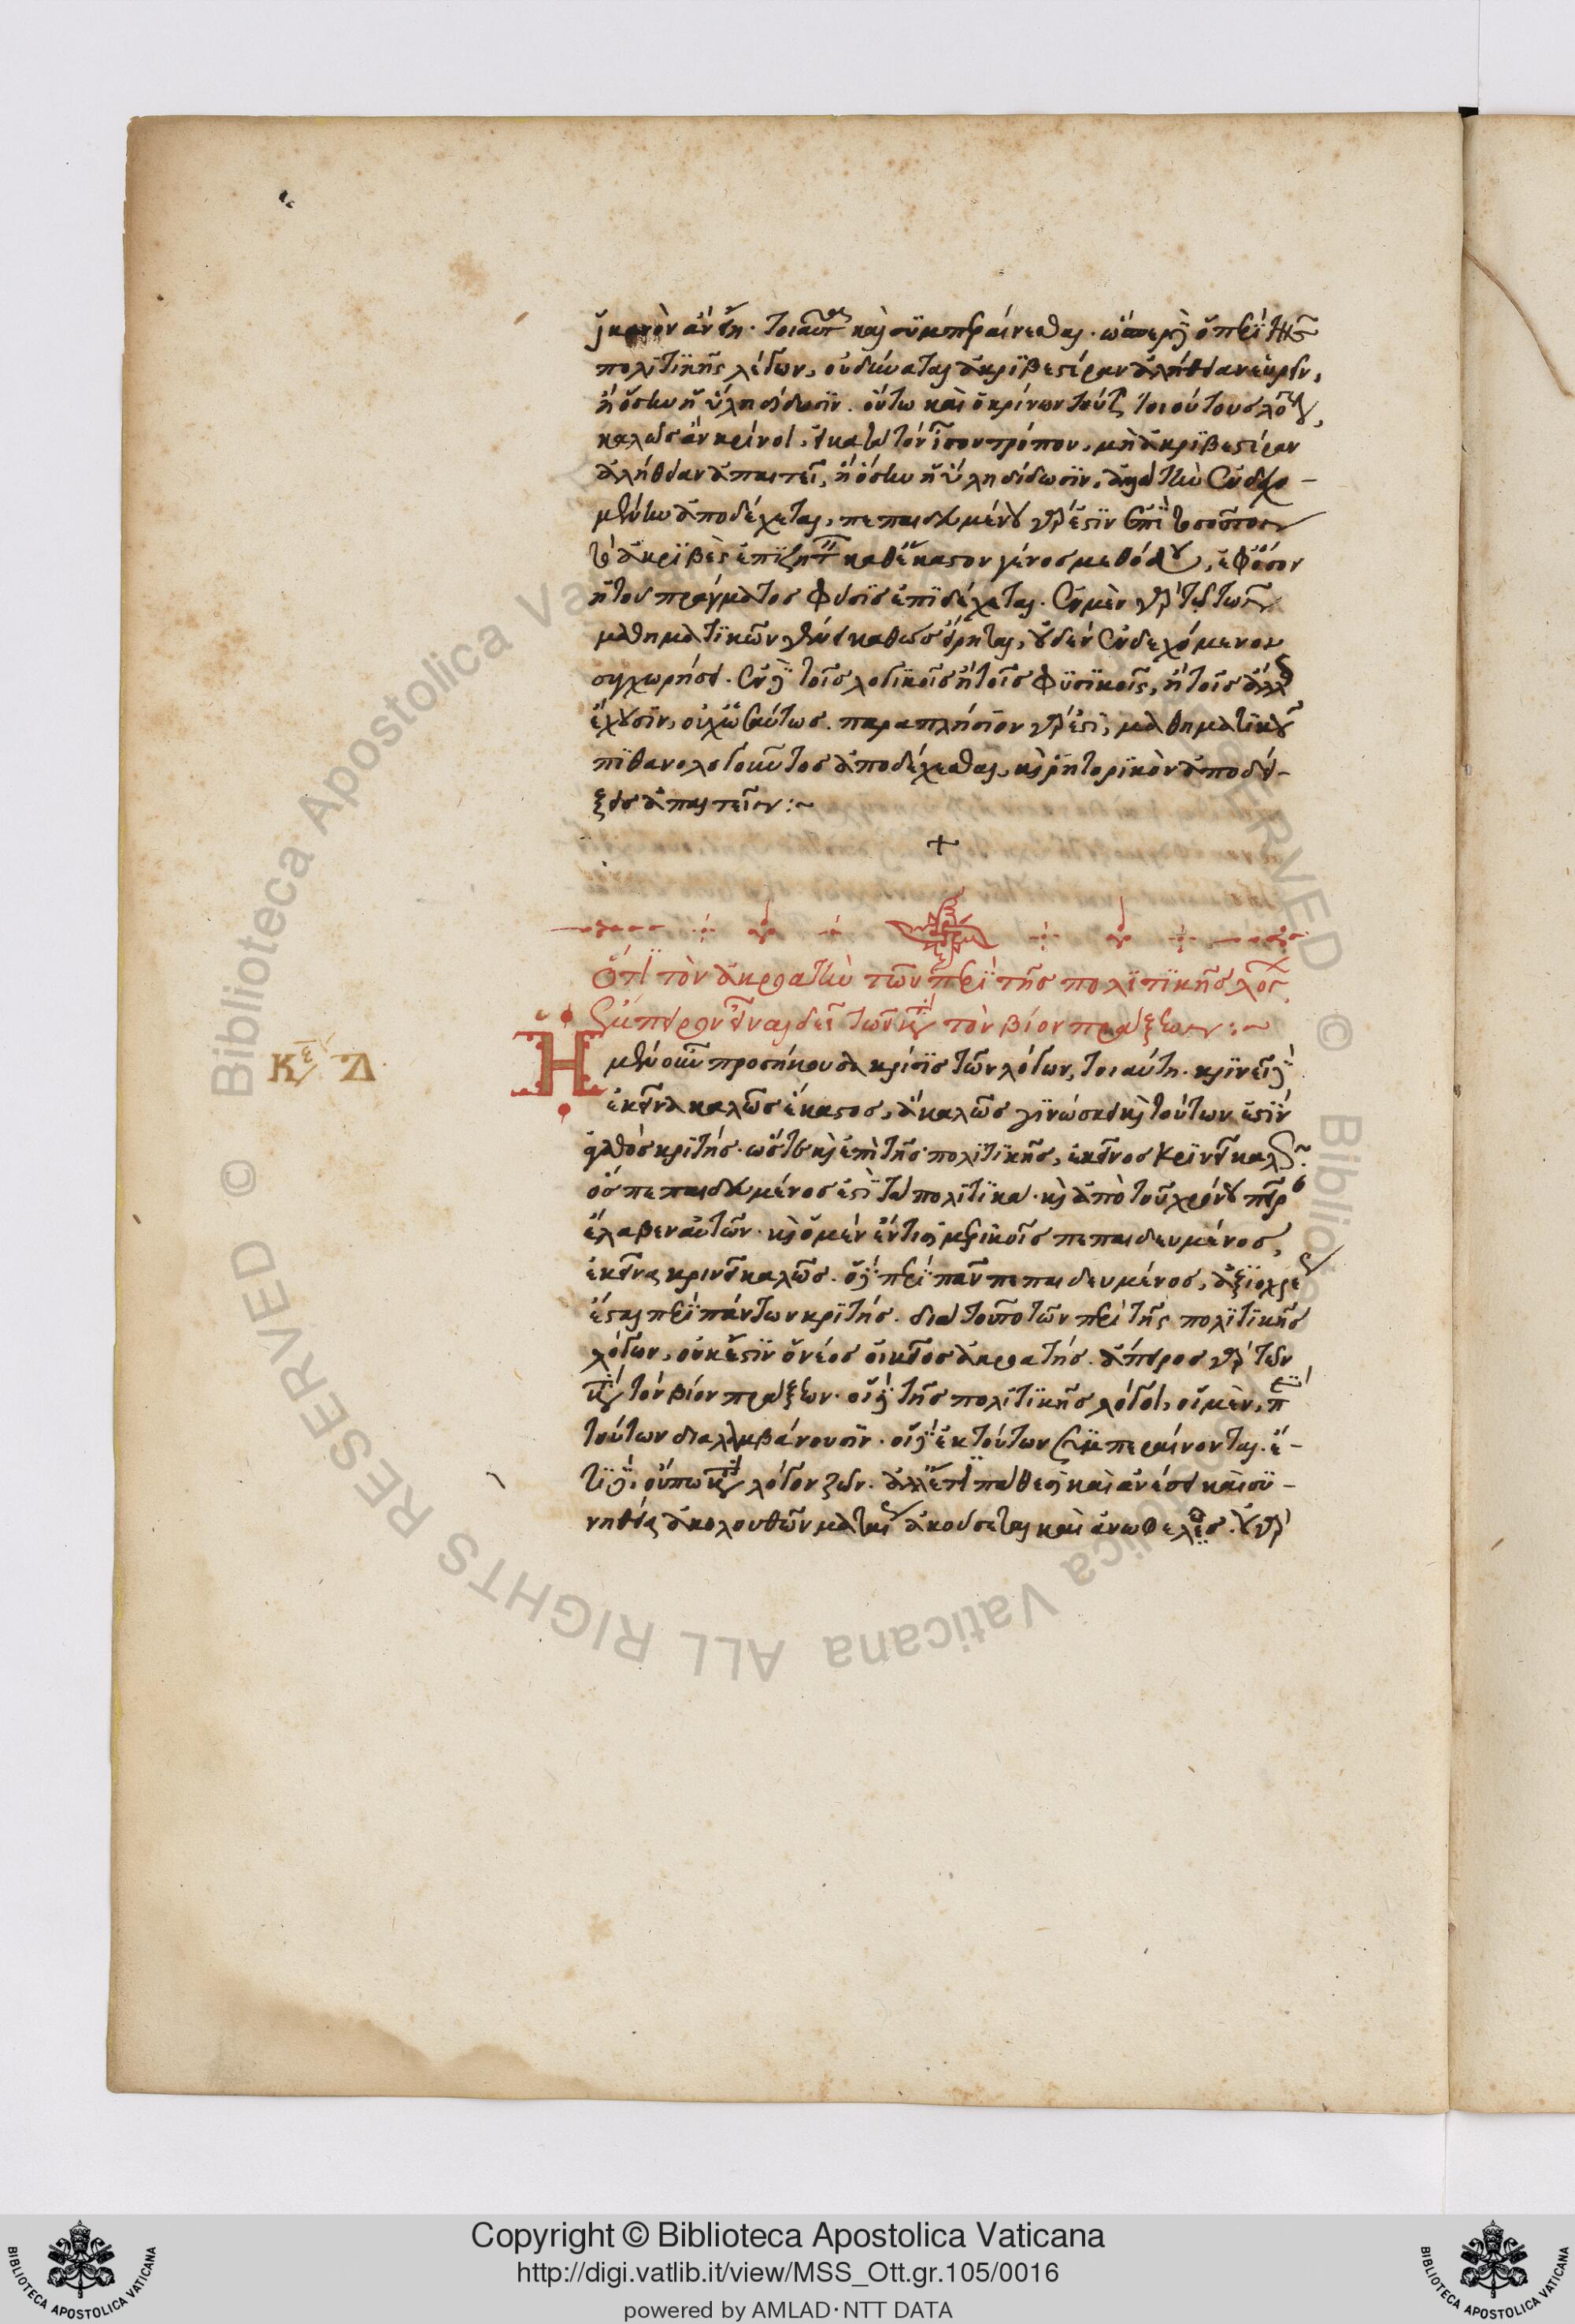 ἱκανὸν ἂν εἴη. τοιαῦτα καὶ συμπεραίνεσθαι. ὥσπερ δὲ ὁ περὶ τῆς
πολιτικῆς λέγων, οὐ δύναται ἀκριβεστέραν ἀλήθειαν εὑρεῖν,
ἢ ὅσην ἡ ὕλη δίδωσιν. οὕτω καὶ ὁ κρίνων τοὺς τοιούτους λόγους,
καλῶς ἂν κρίνοι, εἰ κατὰ τὸν ἴσον τρόπον, μὴ ἀκριβεστέραν
ἀλήθειαν ἀπαιτεῖ, ἢ ὅσην ἡ ὕλη δίδωσιν, ἀλλὰ τὴν ἐνδεχο-
μένην ἀποδέχεται, πεπαιδευμένου γάρ ἐστιν ἐπὶ τοσοῦτον
τὸ ἀκριβὲς ἐπιζητεῖν καθ' ἕκαστον γένος μεθόδου, ἐφ' ὅσον
ἡ τοῦ πράγματος φύσις ἐπιδέχεται. ἐν μὲν γὰρ τῶν
μαθηματικῶν καθὼς εἴρηται, οὐδὲν ἐνδεχόμενον
συγχωρήσει. ἐν δὲ τοῖς λογικοῖς ἢ τοῖς φυσικοῖς, ἢ τοῖς ἄλλοις
ἔχουσιν, οὐχ ὡσαύτως. παραπλήσιον γάρ ἐστι, μαθηματικοῦ
πιθανολογοῦντος ἀποδέχεσθαι, καὶ ῥητορικὸν ἀποδεί-
ξεις ἀπαιτεῖν :~
+
Ὅτι τὸν ἀκροατὴν τῶν περὶ τῆς πολιτικῆς λόγων
ἔμπειρον εἶναι δεῖ τῶν κατὰ τὸν βίον πράξεων :~
Κεφ Δ
Ἡ μὲν οὖν προσήκουσα κρίσις τῶν λόγων, τοιαύτη. κρίνει δὲ
ἐκεῖνα καλῶς ἕκαστος, ἃ καλῶς γινώσκει καὶ τούτων ἐστὶν
ἀγαθὸς κριτής. ὥστε καὶ ἐπὶ τῆς πολιτικῆς, ἐκεῖνος κρινεῖ καλῶς.
ὃς πεπαιδευμένος ἐστὶ τὰ πολιτικὰ. καὶ ἀπὸ τοῦ χρόνου πεῖραν
ἔλαβεν αὐτῶν. καὶ ὁ μὲν ἔν τισι μερικοῖς πεπαιδευμένος,
ἐκεῖνα κρινεῖ καλῶς. ὁ δὲ περὶ πᾶν πεπαιδευμένος, ἀξιόχρεως
ἔσται περὶ πάντων κριτής. διὰ τοῦτο τῶν περὶ τῆς πολιτικῆς
λόγων, οὐκ ἔστιν ὁ νέος οἰκεῖος ἀκροατής. ἄπειρος γὰρ τῶν
κατὰ τὸν βίον πράξεων. οἱ δὲ τῆς πολιτικῆς λόγοι, οἱ μὲν, περὶ
τούτων διαλαμβάνουσιν. οἱ δὲ ἐκ τούτων συμπεραίνονται. ἔ-
τι δὲ, οὔπω κατὰ λόγον ζῶν. ἀλλ' ἔτι πάθεσι καὶ ἀνέσει καὶ συ-
νηθείᾳ ἀκολουθῶν ματαίως ἀκούσεται καὶ ἀνωφελῶς. οὐ γὰρ
Copyright © Biblioteca Apostolica Vaticana
http://digi.vatlib.it/view/MSS_Ott.gr.105/0016
powered by AMLAD·NTT DATA